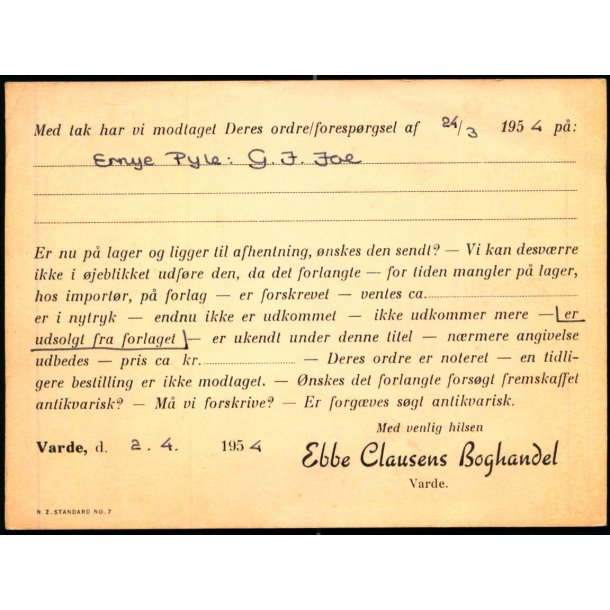 Med tak har vi modtaget Deres ordre/forespørgsel af 24/3 1954 på:
Ernye Pyle: G. J. Joe
Er nu på lager og ligger til afhentning, ønskes den sendt? — Vi kan desværre
ikke i øjeblikket udføre den, da det forlangte — for tiden mangler på lager,
hos importør, på forlag — er forskrevet — ventes ca.
er i nytryk — endnu ikke er udkommet — ikke udkommer mere — er
udsolgt fra forlaget — er ukendt under denne titel — nærmere angivelse
udbedes — pris ca kr. — Deres ordre er noteret — en tidli-
gere bestilling er ikke modtaget. — Ønskes det forlangte forsøgt fremskaffet
antikvarisk? — Må vi forskrive? — Er forgæves søgt antikvarisk.
Med venlig hilsen
Varde, d. 2. 4. 1954
Ebbe Clausens Boghandel
Varde.
N. Z. STANDARD NO. 7